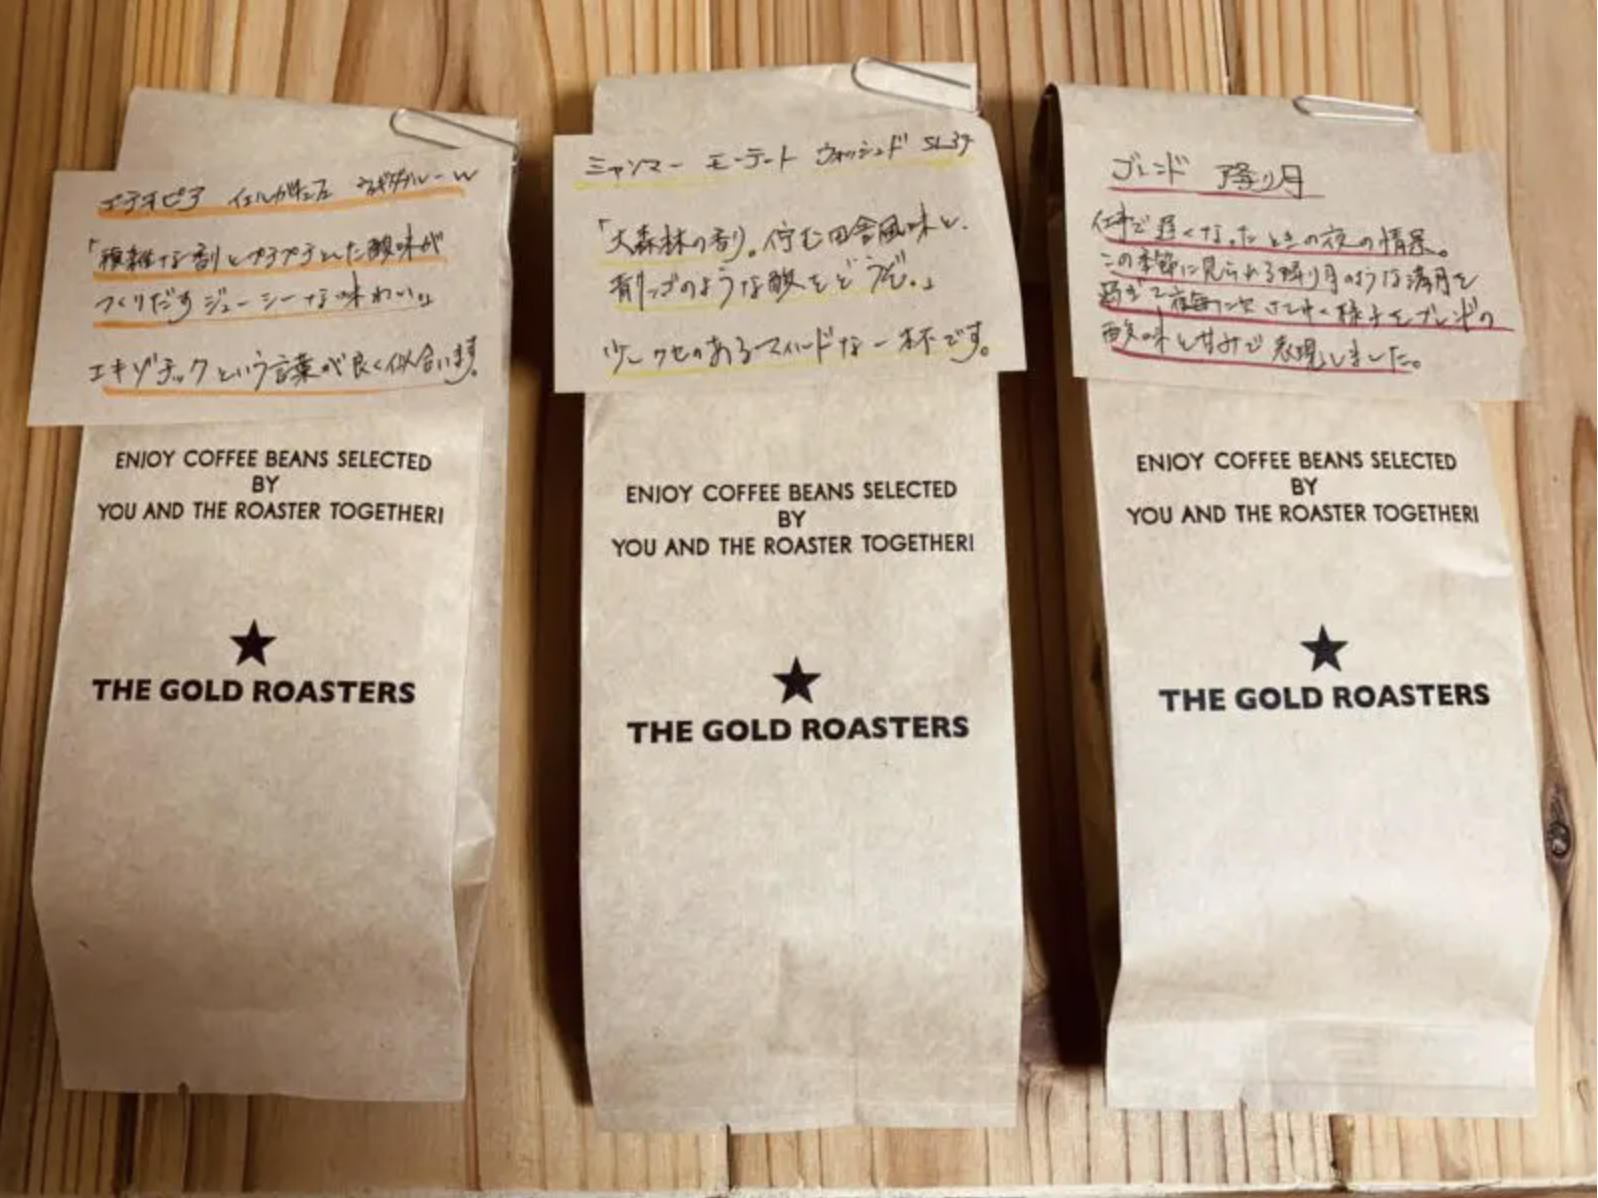 エチオピア イェルガチェフェ
「複雑な香りとプチプチとした酸味が
つくりだすジューシーな味わい。」
エキゾチックという言葉が良く似合います。
ENJOY COFFEE BEANS SELECTED
BY
YOU AND THE ROASTER TOGETHER!
THE GOLD ROASTERS
ミャンマー モーテート ウォッシュド SL34
「大森林の香り。佇む田舎風味と、
青りんごのような酸をどうぞ。」
少しクセのあるマイルドな一杯です。
ENJOY COFFEE BEANS SELECTED
BY
YOU AND THE ROASTER TOGETHER!
THE GOLD ROASTERS
ブレンド 降り月
仕事で遅くなったときの夜の情景。
この季節に見られる降り月のような満月を
過ぎて夜毎に欠さてゆく様子をブレンドの
酸味と甘みで表現しました。
ENJOY COFFEE BEANS SELECTED
BY
YOU AND THE ROASTER TOGETHER!
THE GOLD ROASTERS